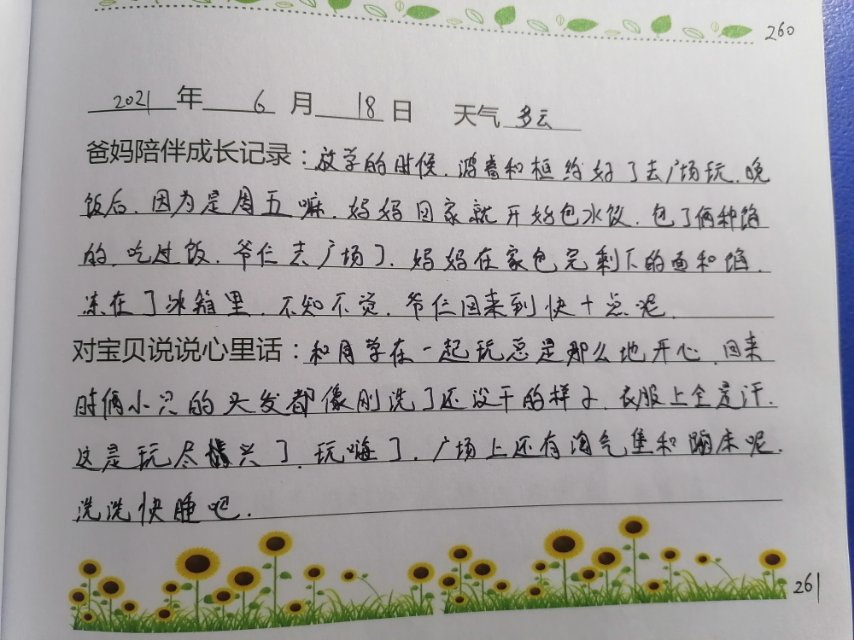 260
2021 年 6 月 18 日 天气 多云
爸妈陪伴成长记录：放学的时候，和桓约好了去广场玩，晚
饭后，因为是周五嘛，妈妈回家就开始包水饺，包了俩种馅
的，吃过饭，爷仨去广场了，妈妈在家包完剩下的面和馅，
冻在了冰箱里，不知不觉，爷仨回来到快十点呢，
对宝贝说说心里话：和同学在一起玩总是那么地开心，回来
时俩小只的头发都像刚洗了还没干的样子，衣服上全是汗，
这是玩尽兴了，玩嗨了，广场上还有淘气堡和蹦床呢，
洗洗快睡吧，
261